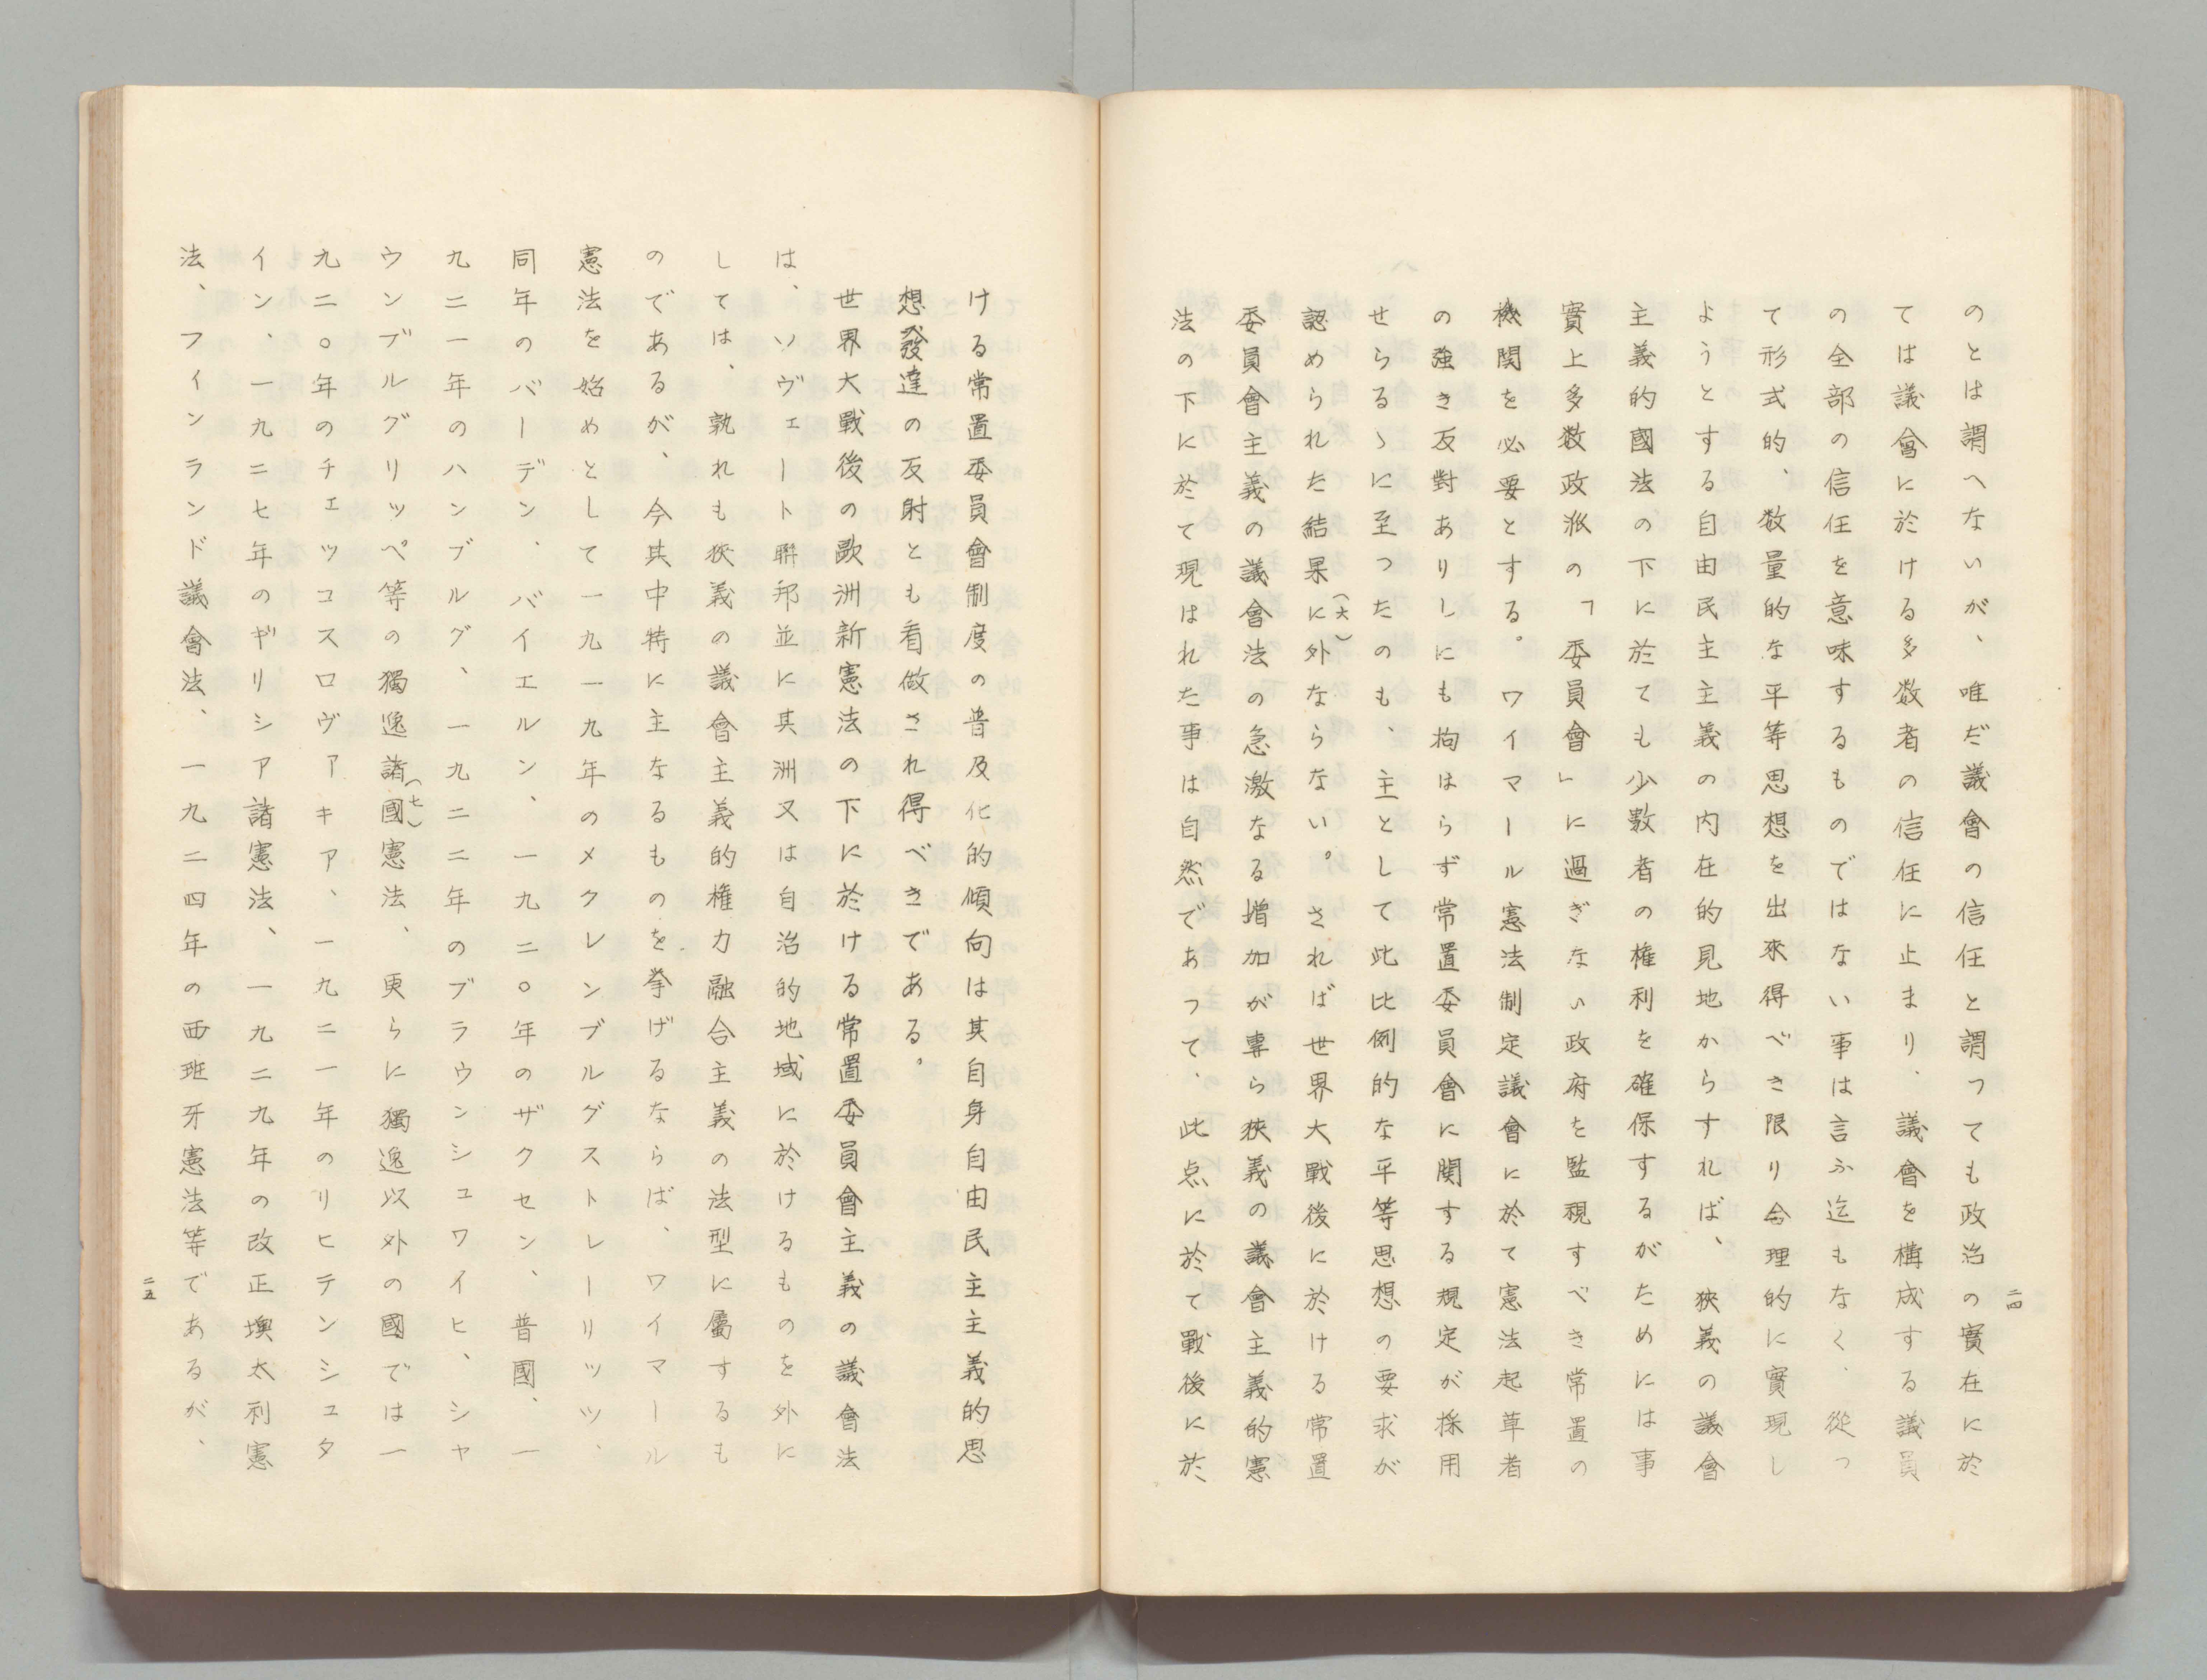 二四
のとは謂へないが、唯だ議會の信任と謂つても政治の實在に於
ては議會に於ける多数者の信任に止まり、議會を構成する議員
の全部の信任を意味するものではない事は言ふ迄もなく、從つ
て形式的、数量的な平等思想を出來得べき限り合理的に實現し
ようとする自由民主主義の内在的見地からすれば、狹義の議會
主義的國法の下に於ても少数者の権利を確保するがためには事
實上多数政派の「委員會」に過ぎない政府を監視すべき常置の
機関を必要とする。ワイマール憲法制定議會に於て憲法起草者
の強き反對ありしにも拘はらず常置委員會に関する規定が採用
せらるゝに至つたのも、主として此比例的な平等思想の要求が
認められた結果に外ならない。(六)されば世界大戰後に於ける常置
委員會主義の議會法の急激なる増加が専ら狹義の議會主義的憲
法の下に於て現はれた事は自然であつて、此点に於て戰後に於
ける常置委員會制度の普及化的傾向は其自身自由民主主義的思
想發達の反射とも看做され得べきである。
世界大戰後の歐洲新憲法の下に於ける常置委員會主義の議會法
は、ソヴェート聯邦並に其洲又は自治的地域に於けるものを外に
しては、孰れも狹義の議會主義的権力融合主義の法型に屬するも
のであるが、今其中特に主なるものを挙げるならば、ワイマール
憲法を始めとして一九一九年のメクレンブルグストレーリッツ、
同年のバーデン、バイエルン、一九二〇年のザクセン、普國、一
九二一年のハンブルグ、一九二二年のブラウンシュワイヒ、シャ
ウンブルグリッペ等の獨逸諸國(七)憲法、更らに獨逸以外の國では一
九二〇年のチェッコスロヴァキア、一九二一年のリヒテンシュタ
イン、一九二七年のギリシア諸憲法、一九二九年の改正墺太利憲
法、フインランド議會法、一九二四年の西班牙憲法等であるが、
二五